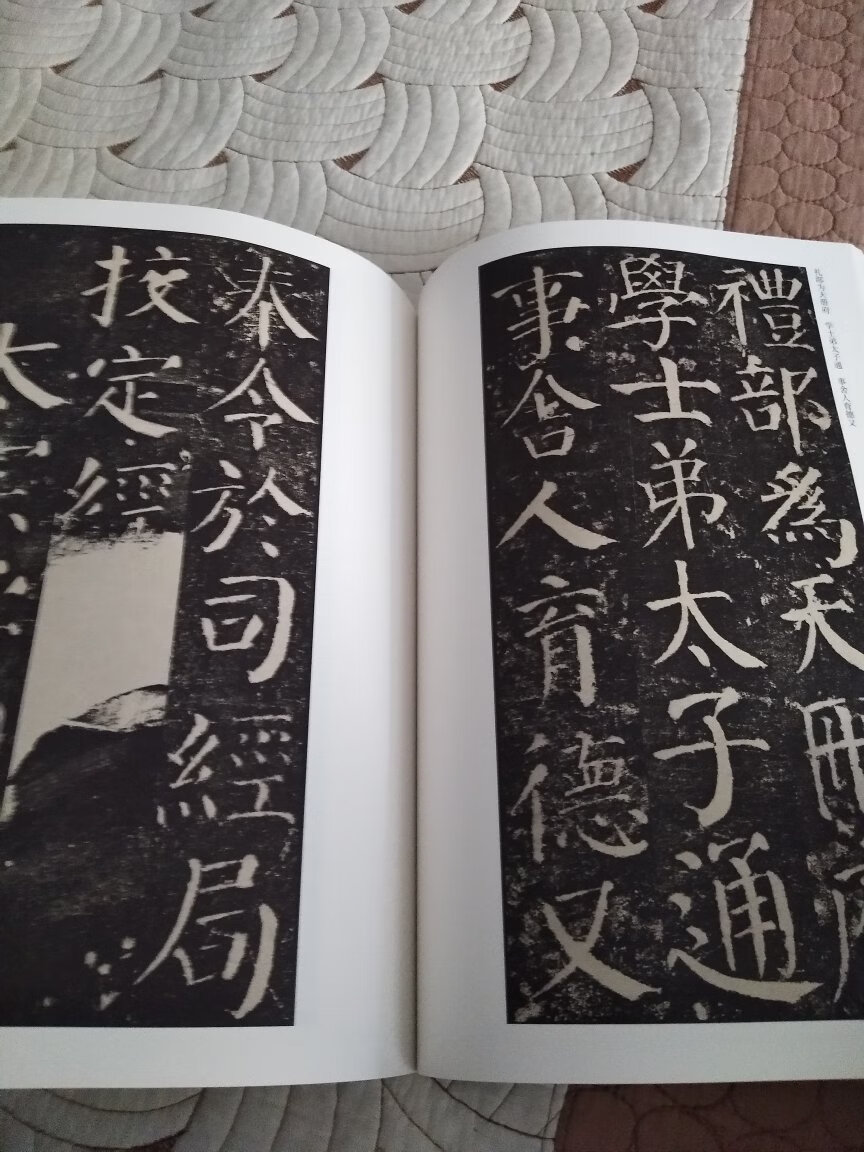 礼部为天册府 学士弟太子通 事舍人育德又
禮部爲天冊府
學士弟太子通
事舍人育德又
奉令於司經局
挍定經
太宗